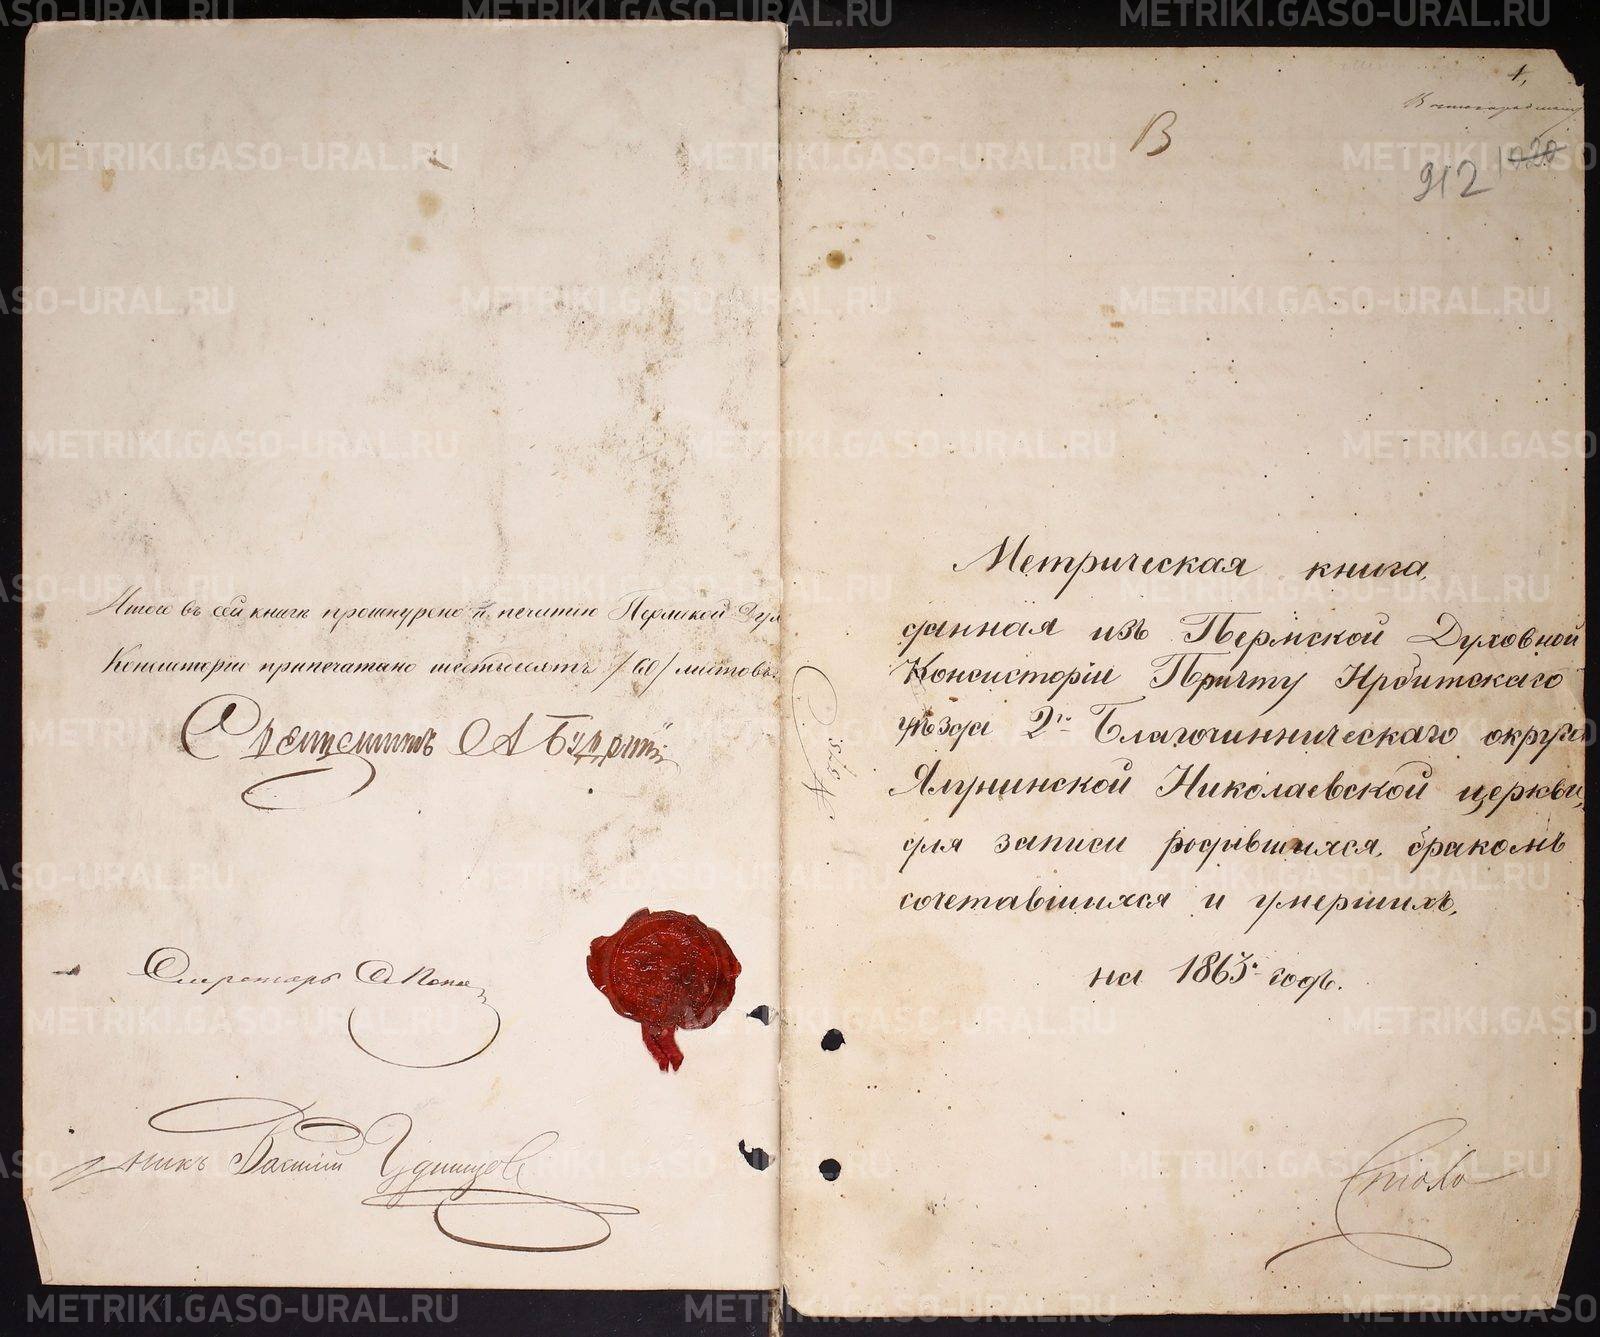 Итого въ сей книгѣ прошнуровано и печатію Пермской Дух
Консисторіи припечатано шестьдесятъ /60/ листовъ.
Секретарь
никъ Василій Удинцовъ
В
912 1020
Метрическая книга,
данная изъ Пермской Духовной
Консисторіи Причту Ирбитскаго
уѣзда 2го Благочинническаго округа
Ялунинской Николаевской церкви,
для записи родившихся, бракомъ
сочетавшихся и умершихъ,
на 1863й годъ.
METRIKI.GASO-URAL.RU